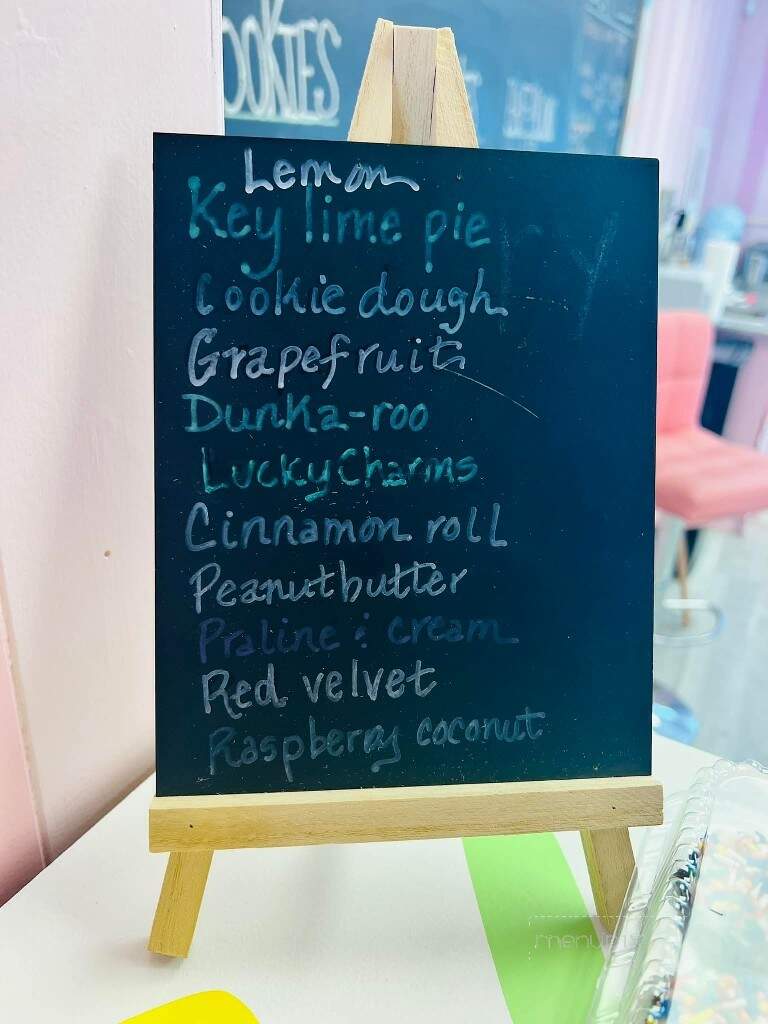 OOKIES
Lemon
Key lime pie
Cookie dough
Grapefruit
Dunka-roo
Lucky Charms
Cinnamon roll
Peanut butter
Praline & cream
Red velvet
Raspberry coconut